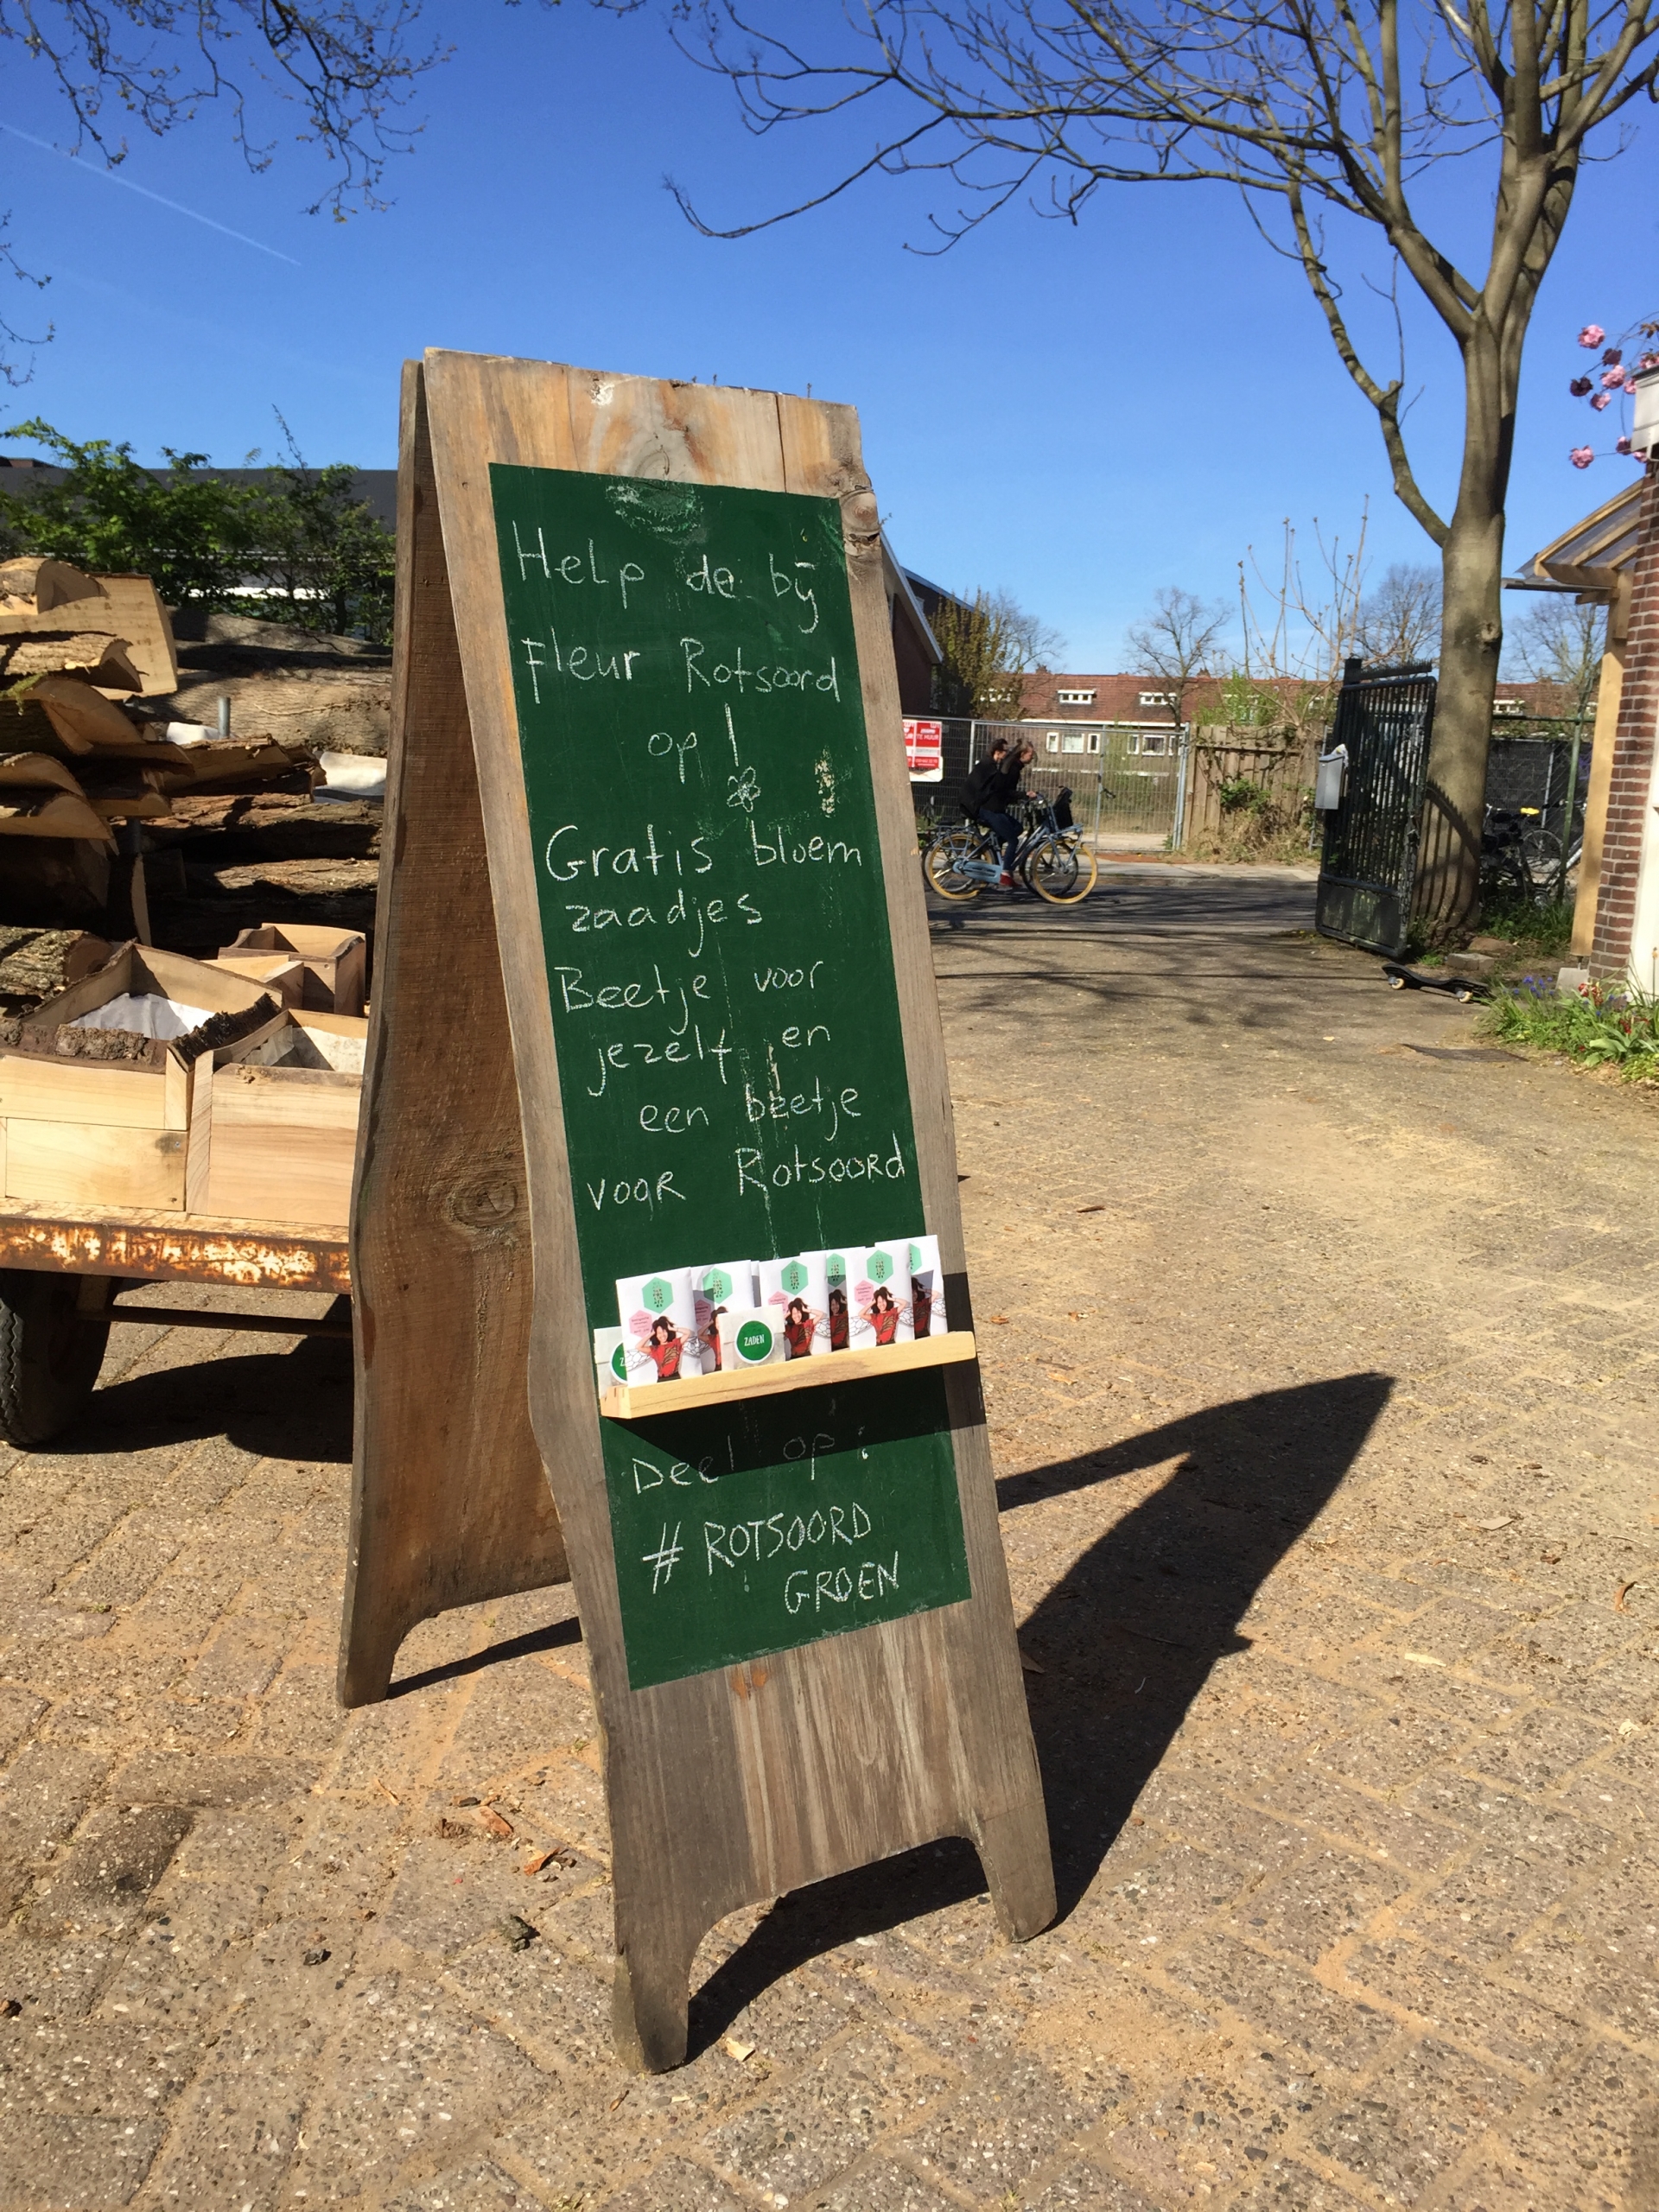 Help de bij
Fleur Rotsoord
op!
Gratis bloem
zaadjes
Beetje voor
jezelf en
een beetje
voor Rotsoord
ZADEN
Deel op:
# ROTSOORD
GROEN